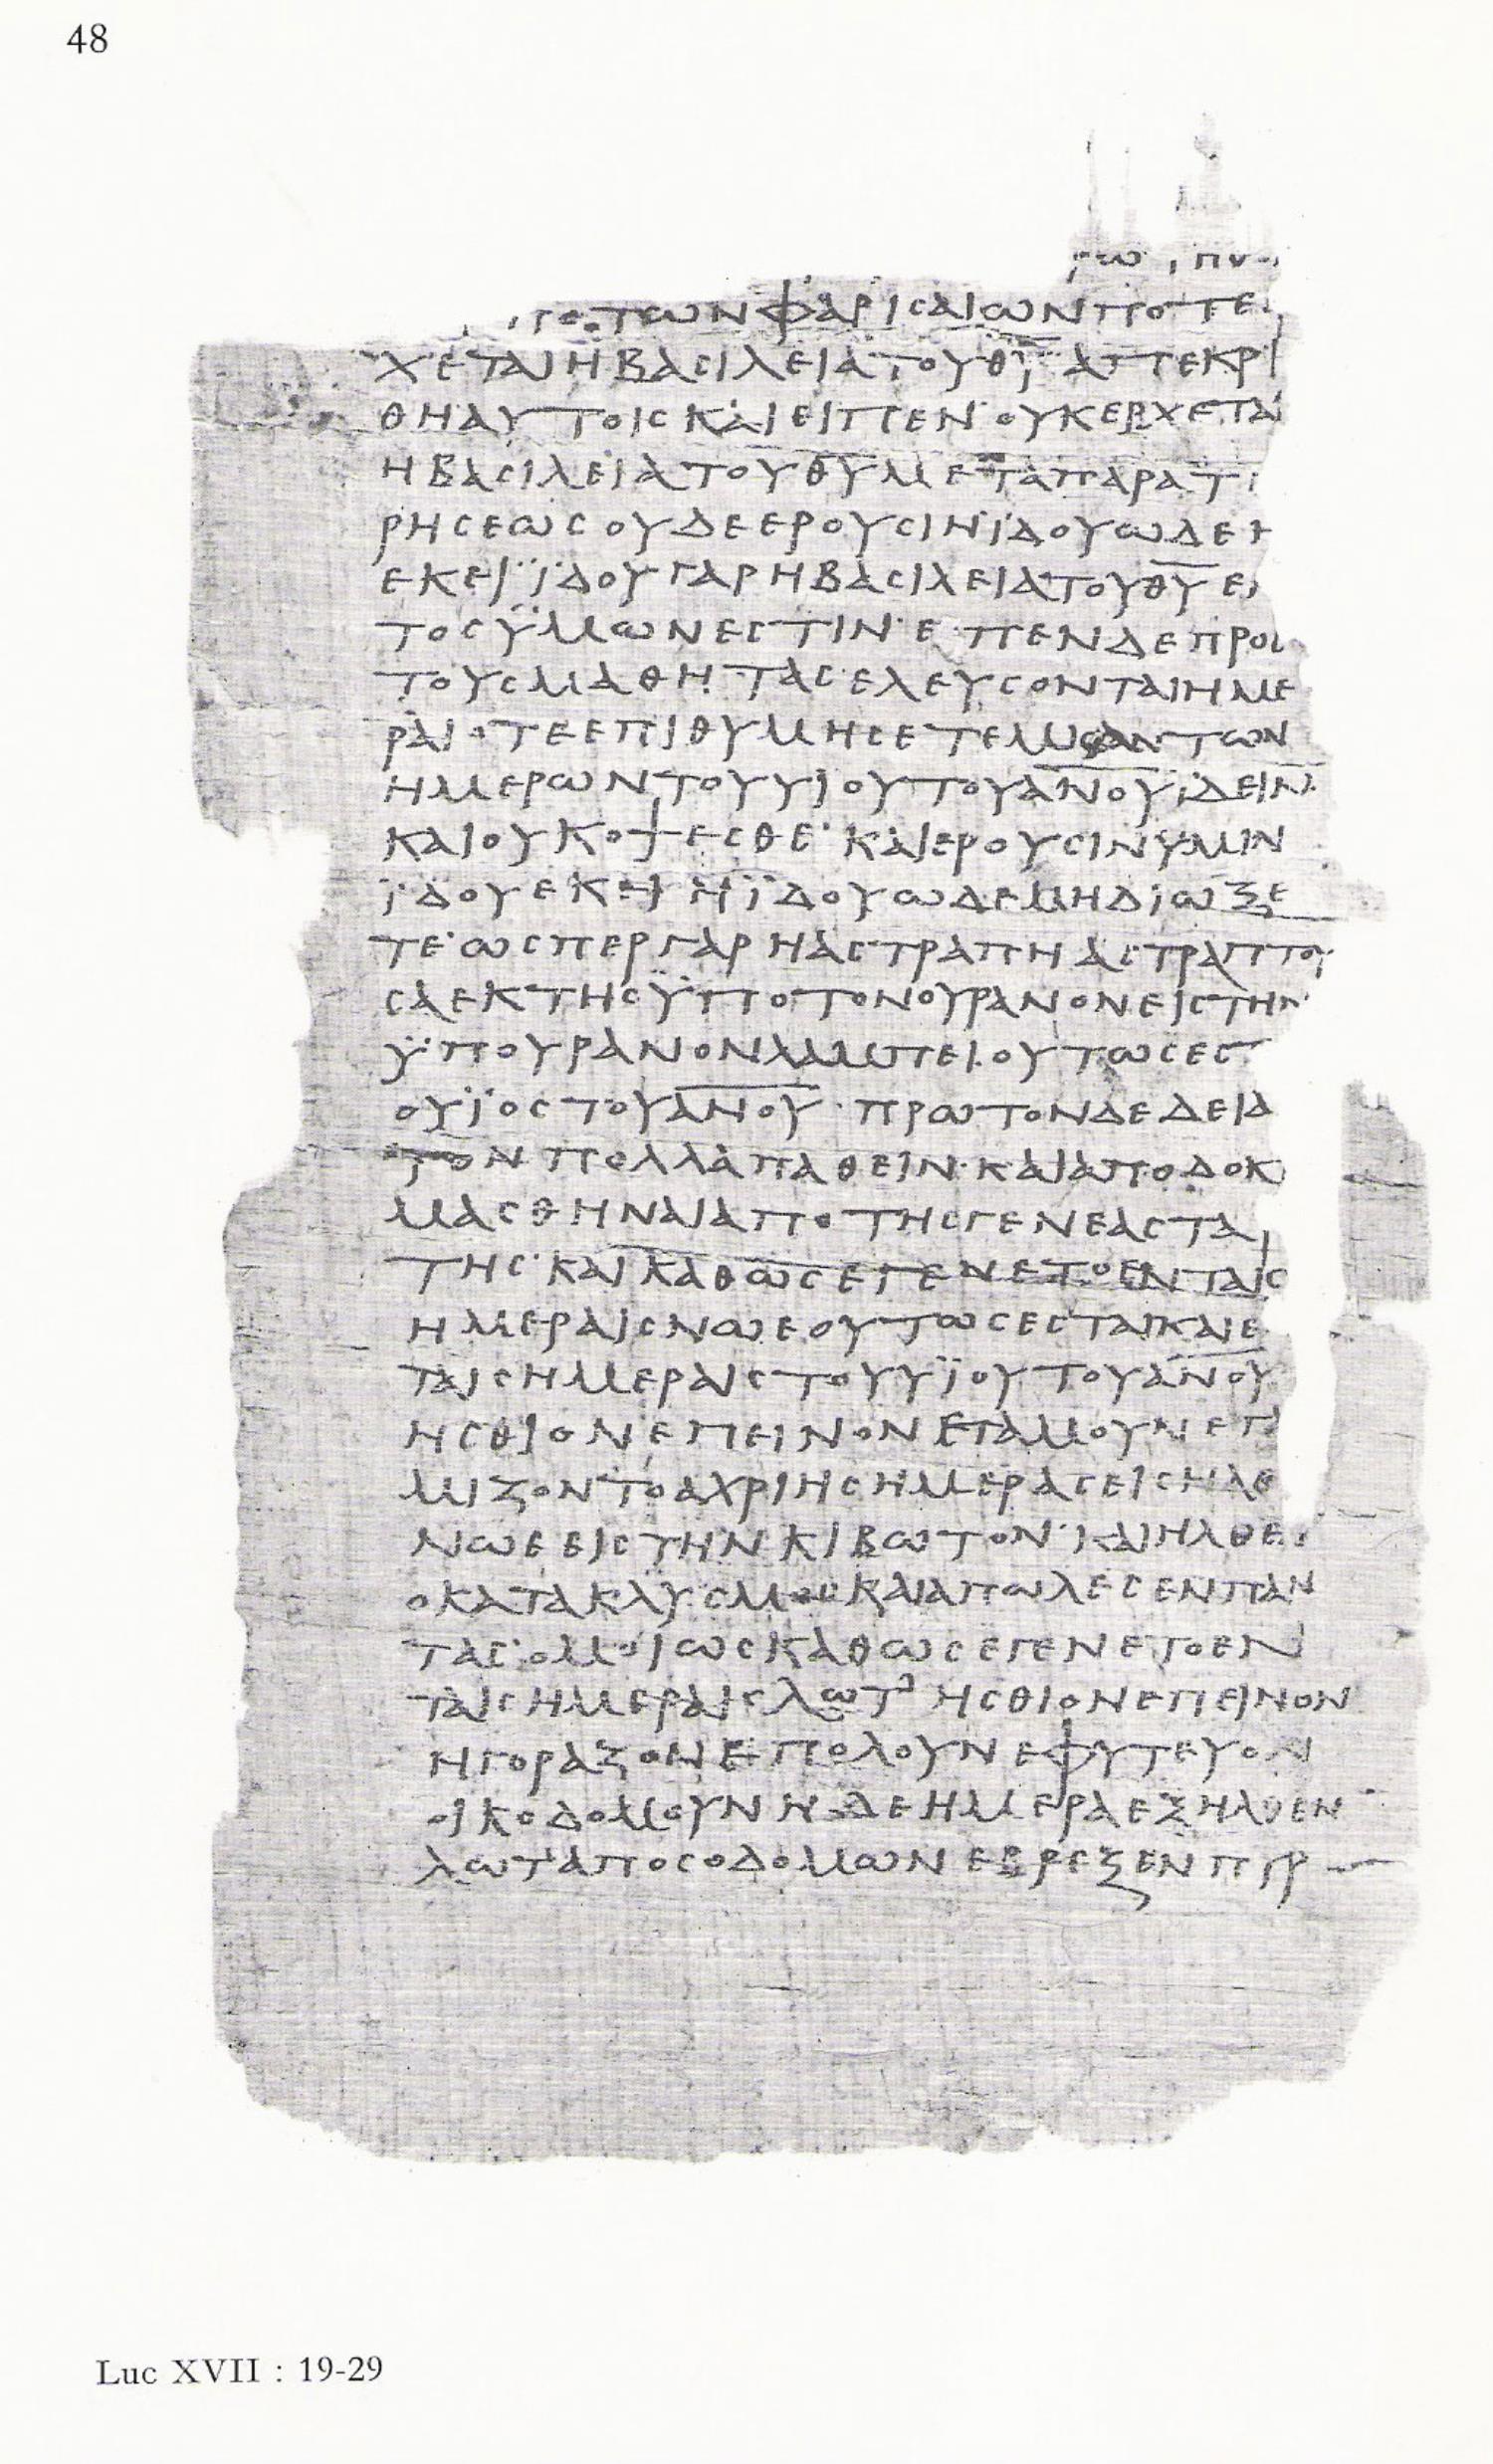 48
των φαρισαιων ποτε
χεται η βασιλεια του θ̅υ̅· απεκρι
θη αυτοις και ειπεν· ουκ ερχεται
η βασιλεια του θ̅υ̅ μετα παρατη
ρησεως ουδε ερουσιν ϊδου ωδε η
εκει· ϊδου γαρ η βασιλεια του θ̅υ̅
τος ϋμων εστιν· ειπεν δε προς
τους μαθητας· ελευσονται ημε
ραι οτε επιθυμησετε μιαν των
ημερων του υϊου του α̅ν̅ο̅υ̅ ϊδειν
και ουκ οψεσθε· και ερουσιν ϋμιν
ϊδου εκει η ϊδου ωδε μη διωξε
τε· ωσπερ γαρ η αστραπη αστραπτου
σα εκ της ϋπο τον ουρανον εις την
ϋπ ουρανον λαμπει· ουτως εσ
ο υϊος του α̅ν̅ο̅υ̅· πρωτον δε δει α
τον πολλα παθειν· και αποδοκ
μασθηναι απο της γενεας τα
της· και καθως εγενετο εν ταις
ημεραις νωε ουτως εσται και ε
ταις ημεραις του υϊου του α̅ν̅ο̅υ̅
ησθιον επεινον εγαμουν εγα
μιζοντο αχρι ης ημερας εισηλθ
νωε εις την κιβωτον· και ηλθεν
ο κατακλυσμος και απωλεσεν παν
τας· ομοιως καθως εγενετο εν
ταις ημεραις λωτ᾽ ησθιον επεινον
ηγοραζον επωλουν εφυτευον
οικοδομουν η δε ημερα εξηλθεν
λωτ απο σοδομων εβρεξεν πυρ
Luc XVII : 19-29